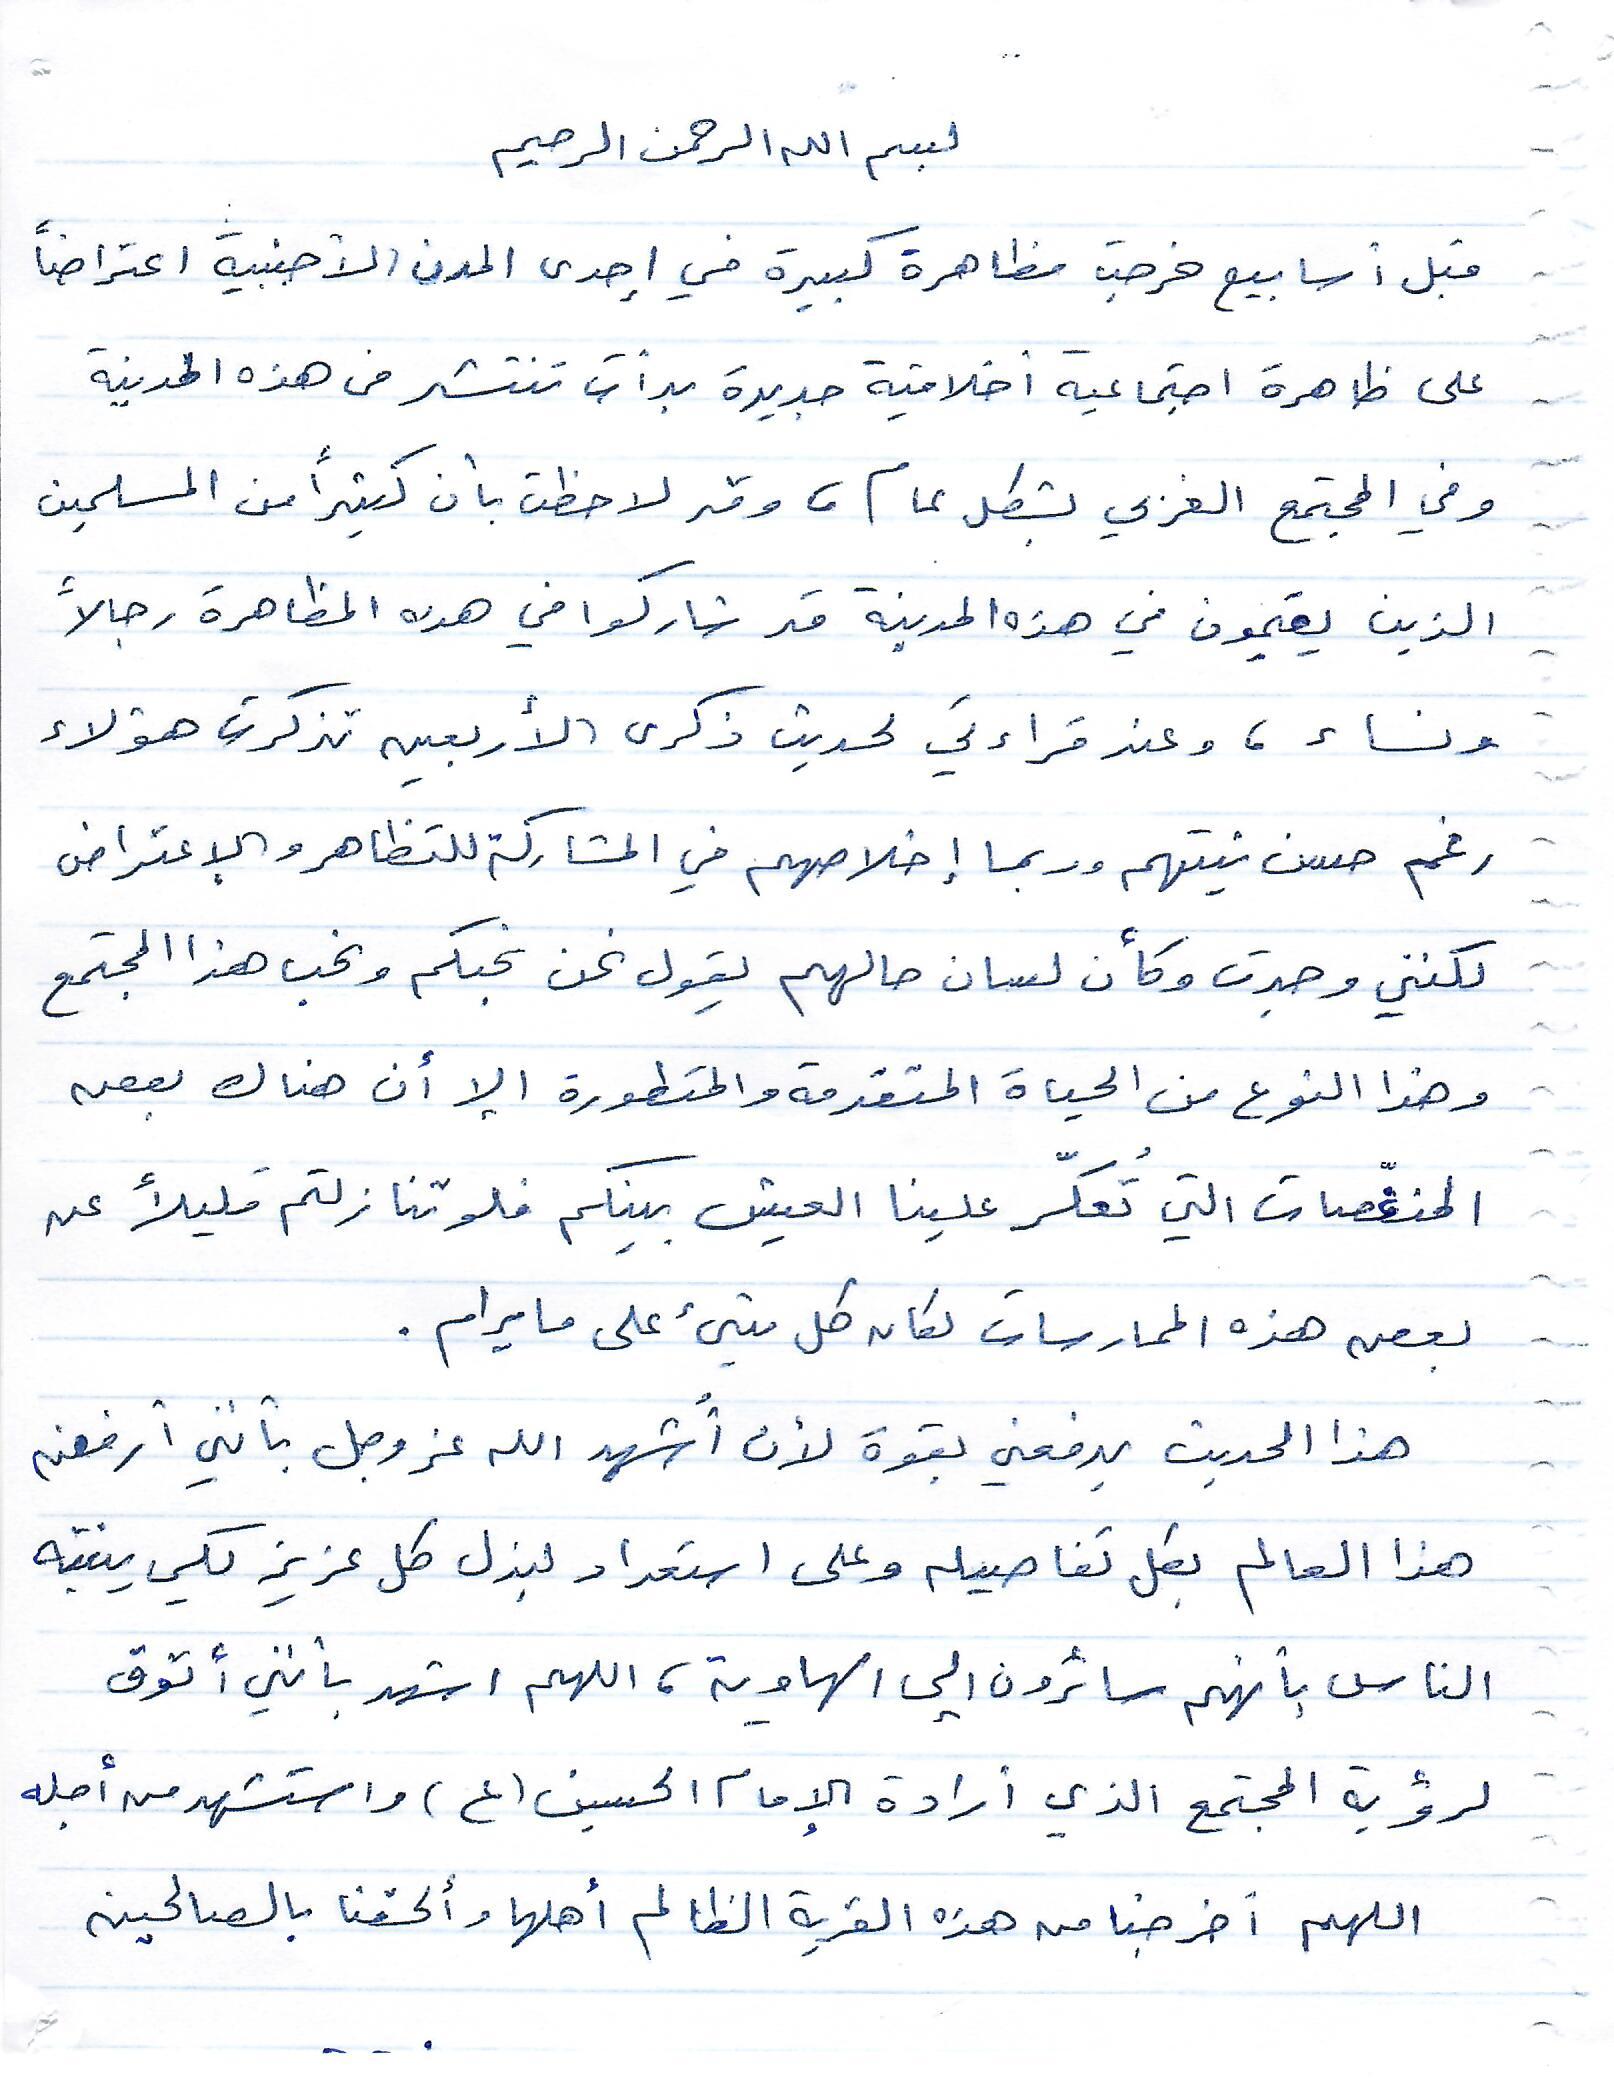 بسم الله الرحمن الرحيم
قبل أسابيع خرجت مظاهرة كبيرة في إحدى المدن الأجنبية اعتراضاً
على ظاهرة اجتماعية أخلاقية جديدة بدأت تنتشر في هذه المدينة
وفي المجتمع الغربي بشكل عام ، وقد لاحظت بأن كثيراً من المسلمين
الذين يقيمون في هذه المدينة قد شاركوا في هذه المظاهرة رجالاً
ونساء ، وعند قراءتي لحديث ذكرى الأربعين تذكرت هؤلاء
رغم حسن نيتهم وربما إخلاصهم في المشاركة للتظاهر والإعتراض
لكنني وجدت وكأن لسان حالهم يقول نحن نحبكم ونحب هذا المجتمع
وهذا النوع من الحياة المتقدمة والمتطورة إلا أن هناك بعض
المنغّصات التي تُعكّر علينا العيش بينكم فلو تنازلتم قليلاً عن
بعض هذه الممارسات لكان كل شيء على ما يرام .
هذا الحديث يدفعني بقوة لأن أُشهد الله عز وجل بأنني أرفض
هذا العالم بكل تفاصيله وعلى استعداد لبذل كل عزيز لكي ينتبه
الناس بأنهم سائرون إلى الهاوية ، اللهم اشهد بأنني أتوق
لرؤية المجتمع الذي أرادة الإمام الحسين (ع) واستشهد من أجله
اللهم أخرجنا من هذه القرية الظالم أهلها وألحقنا بالصالحين